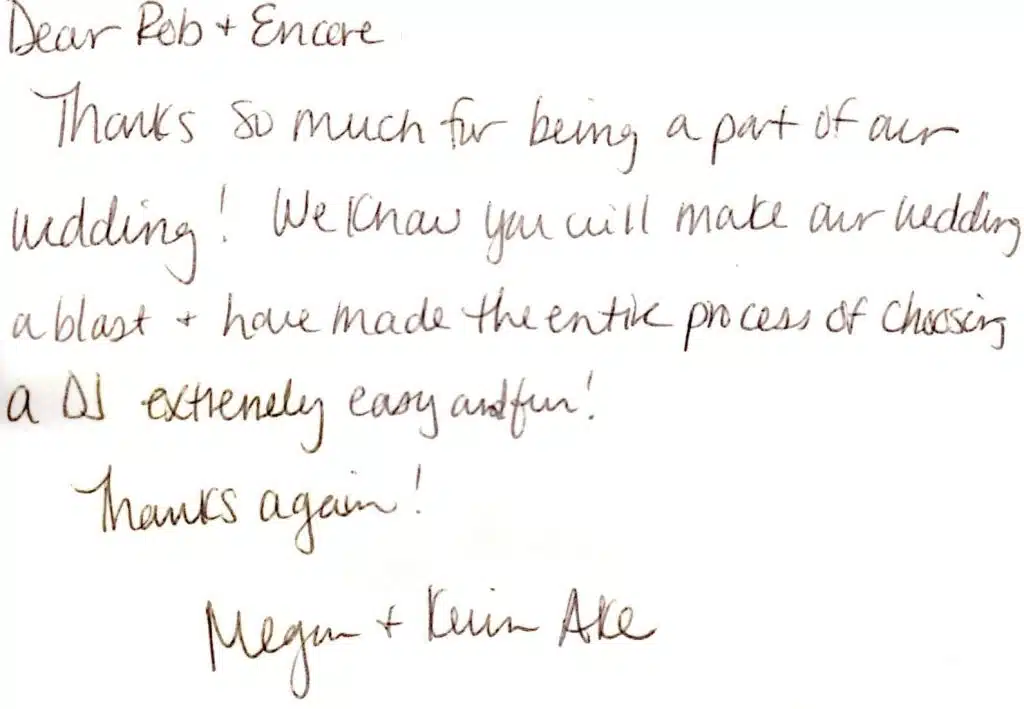 Dear Rob + Encore
Thanks so much for being a part of our
wedding! We know you will make our wedding
a blast + have made the entire process of choosing
a DJ extremely easy and fun!
Thanks again!
Megan + Kevin Ake